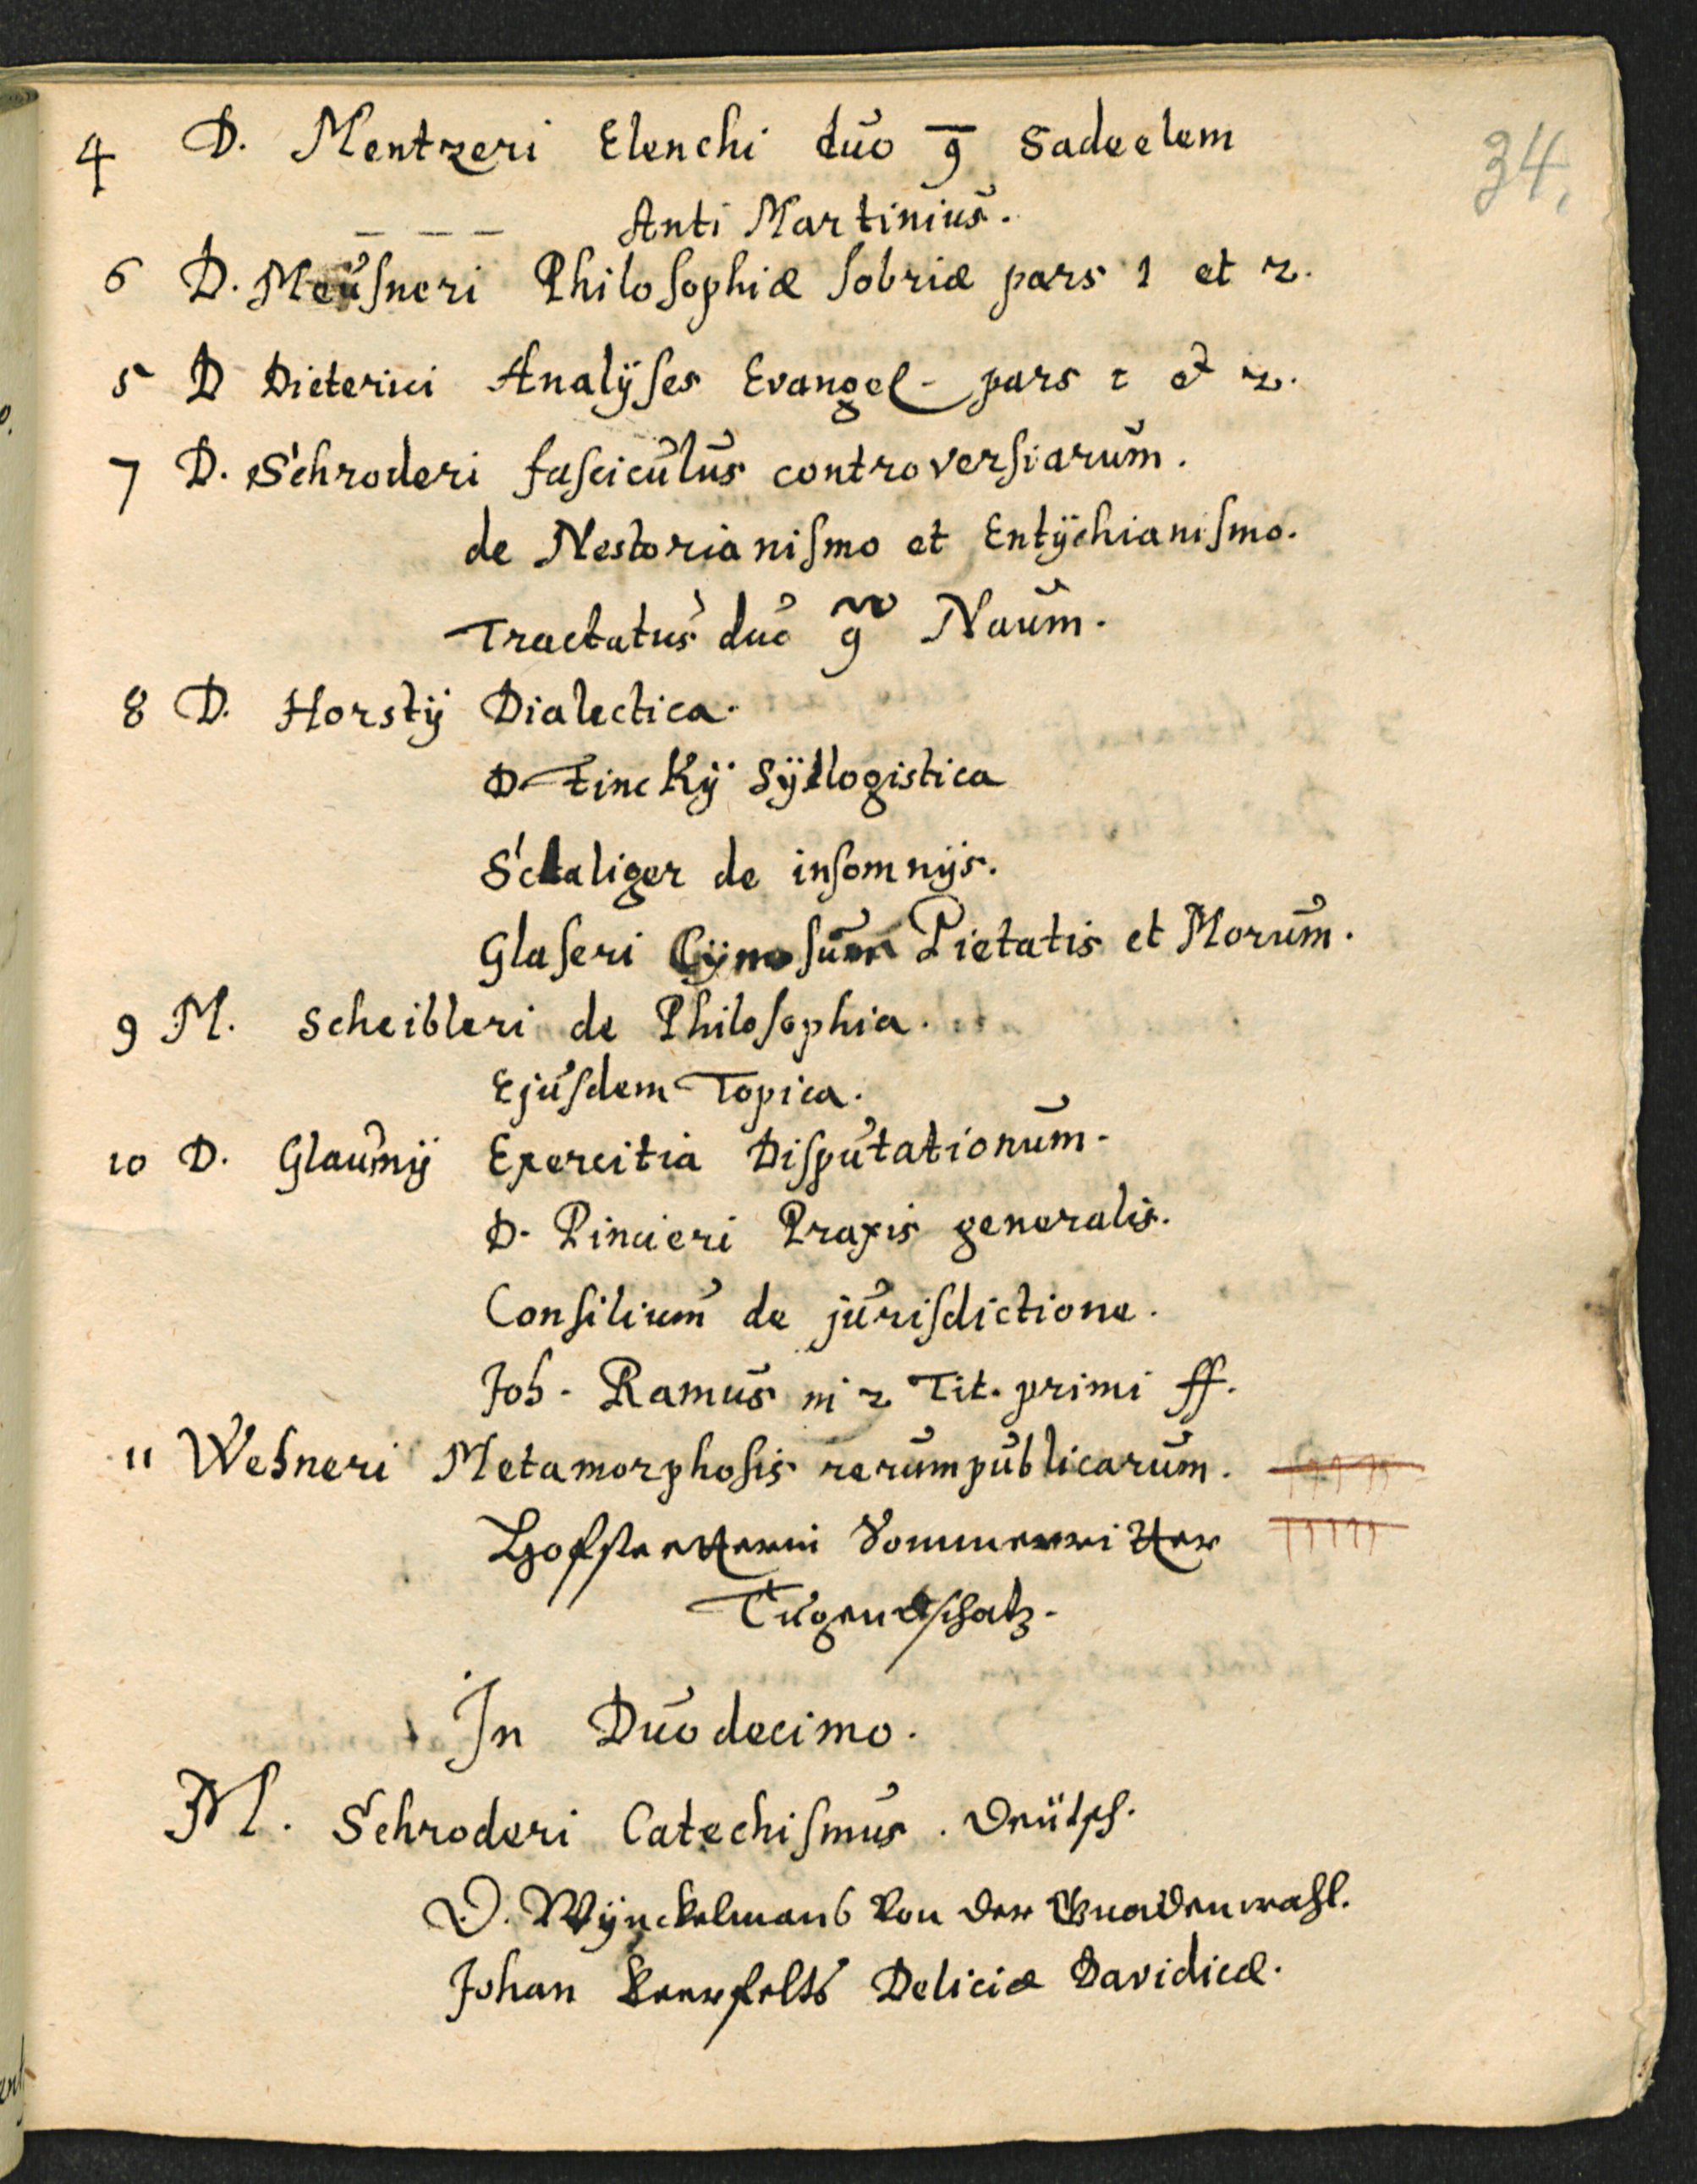 34.
4 D. Mentzeri Elenchi duo g̅ Sadeelem
_ _ _ Anti Martinius.
6 D. Meusneri Philosophiæ sobriæ pars 1 et 2.
5 D Dieterici Analÿses Evangel- pars 1 et 2.
7 D. Schroderi fasciculus controversiarum.
de Nestorianismo et Entÿchianismo.
Tractatus duo g Naum.
8 D. Horstÿ Dialectica.
D Finckÿ Sÿllogistica
Scaliger de insomnijs.
Glaseri Cÿnosura Pietatis et Morum.
9 M. Scheibleri de Philosophia.
Ejusdem Topica.
10 D. Glaumÿ Exercitia Disputationum.
D. Pincieri Praxis generalis.
Consilium de jurisdictione.
Joh. Ramus in 2 Tit. primi ff.
11 Wehneri Metamorphosis rerumpublicarum.
Tugendschatz.
In Duodecimo.
M. Schroderi Catechismus. Deütsch.
D. Wÿnckelmans von der Gnadenwahl.
Johan Deliciæ Davidicæ.